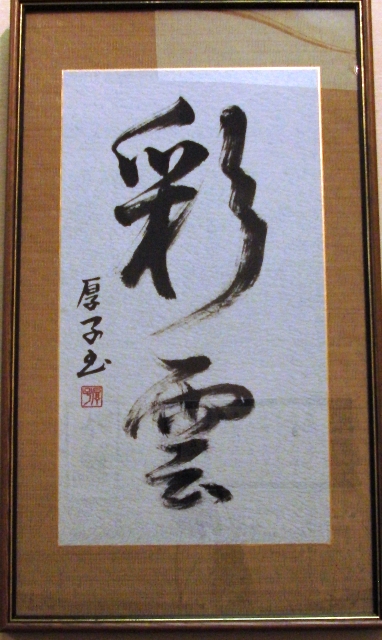 彩雲
厚子书